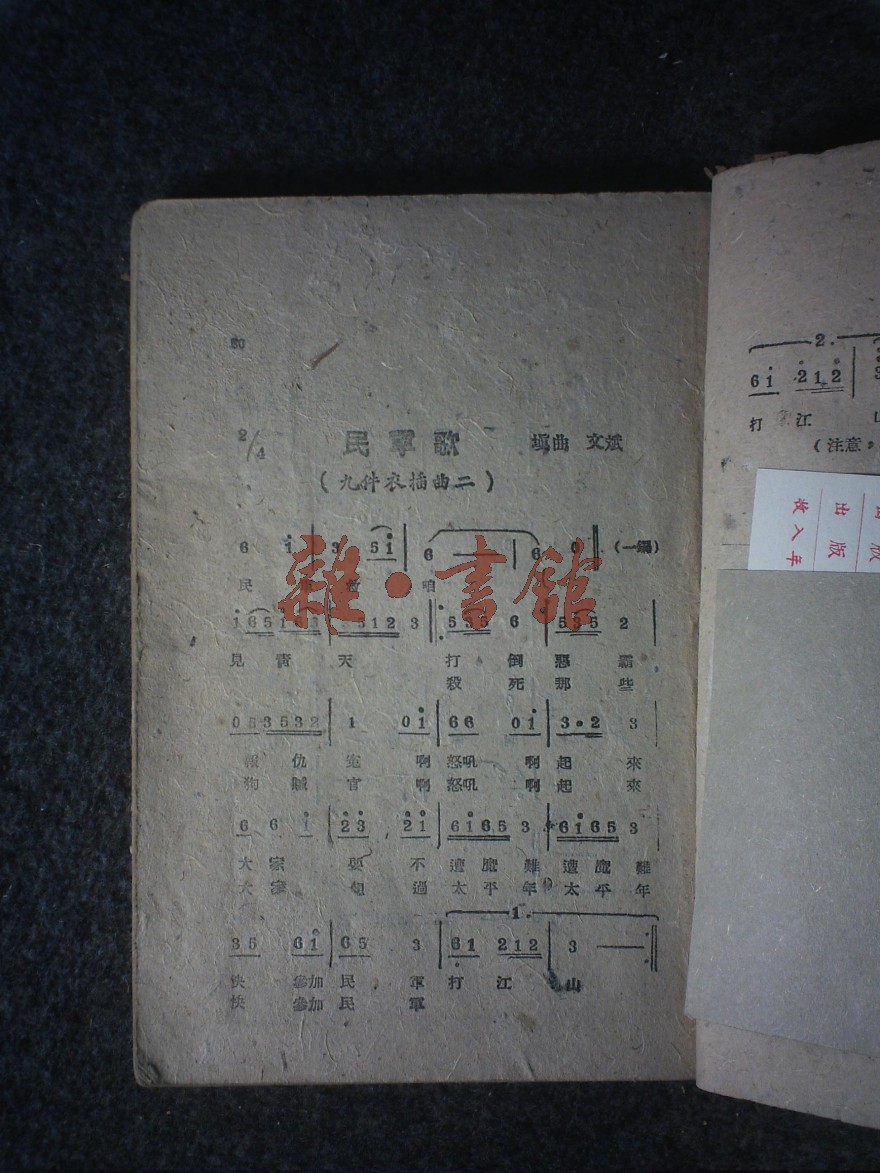 80
2/4 民軍歌 填曲 文斌
(九件衣插曲二)
6 i | 3 5i | 6 — | 6 0 ‖
民 咱
i65 i63 | 5312 3 ‖: 535 6 | 535 2 |
見靑天 打倒惡霸
殺死那些
053532 | 1 0i | 66 0i | 3·2 3
報仇冤 啊 怒吼 啊 起來
狗贓官 啊 怒吼 啊 起來
6 6 i | 23 2i | 6i65 3 | 6i65 3
大家要不遭魔難遭魔難
大家 過太平年太平年
1.
35 6i | 65 3 | 61 212 | 3 — :‖
快參加民軍打江山
快參加民軍
雜·書館
2.
6i 212 |
打江
(注意:
出版
收入年